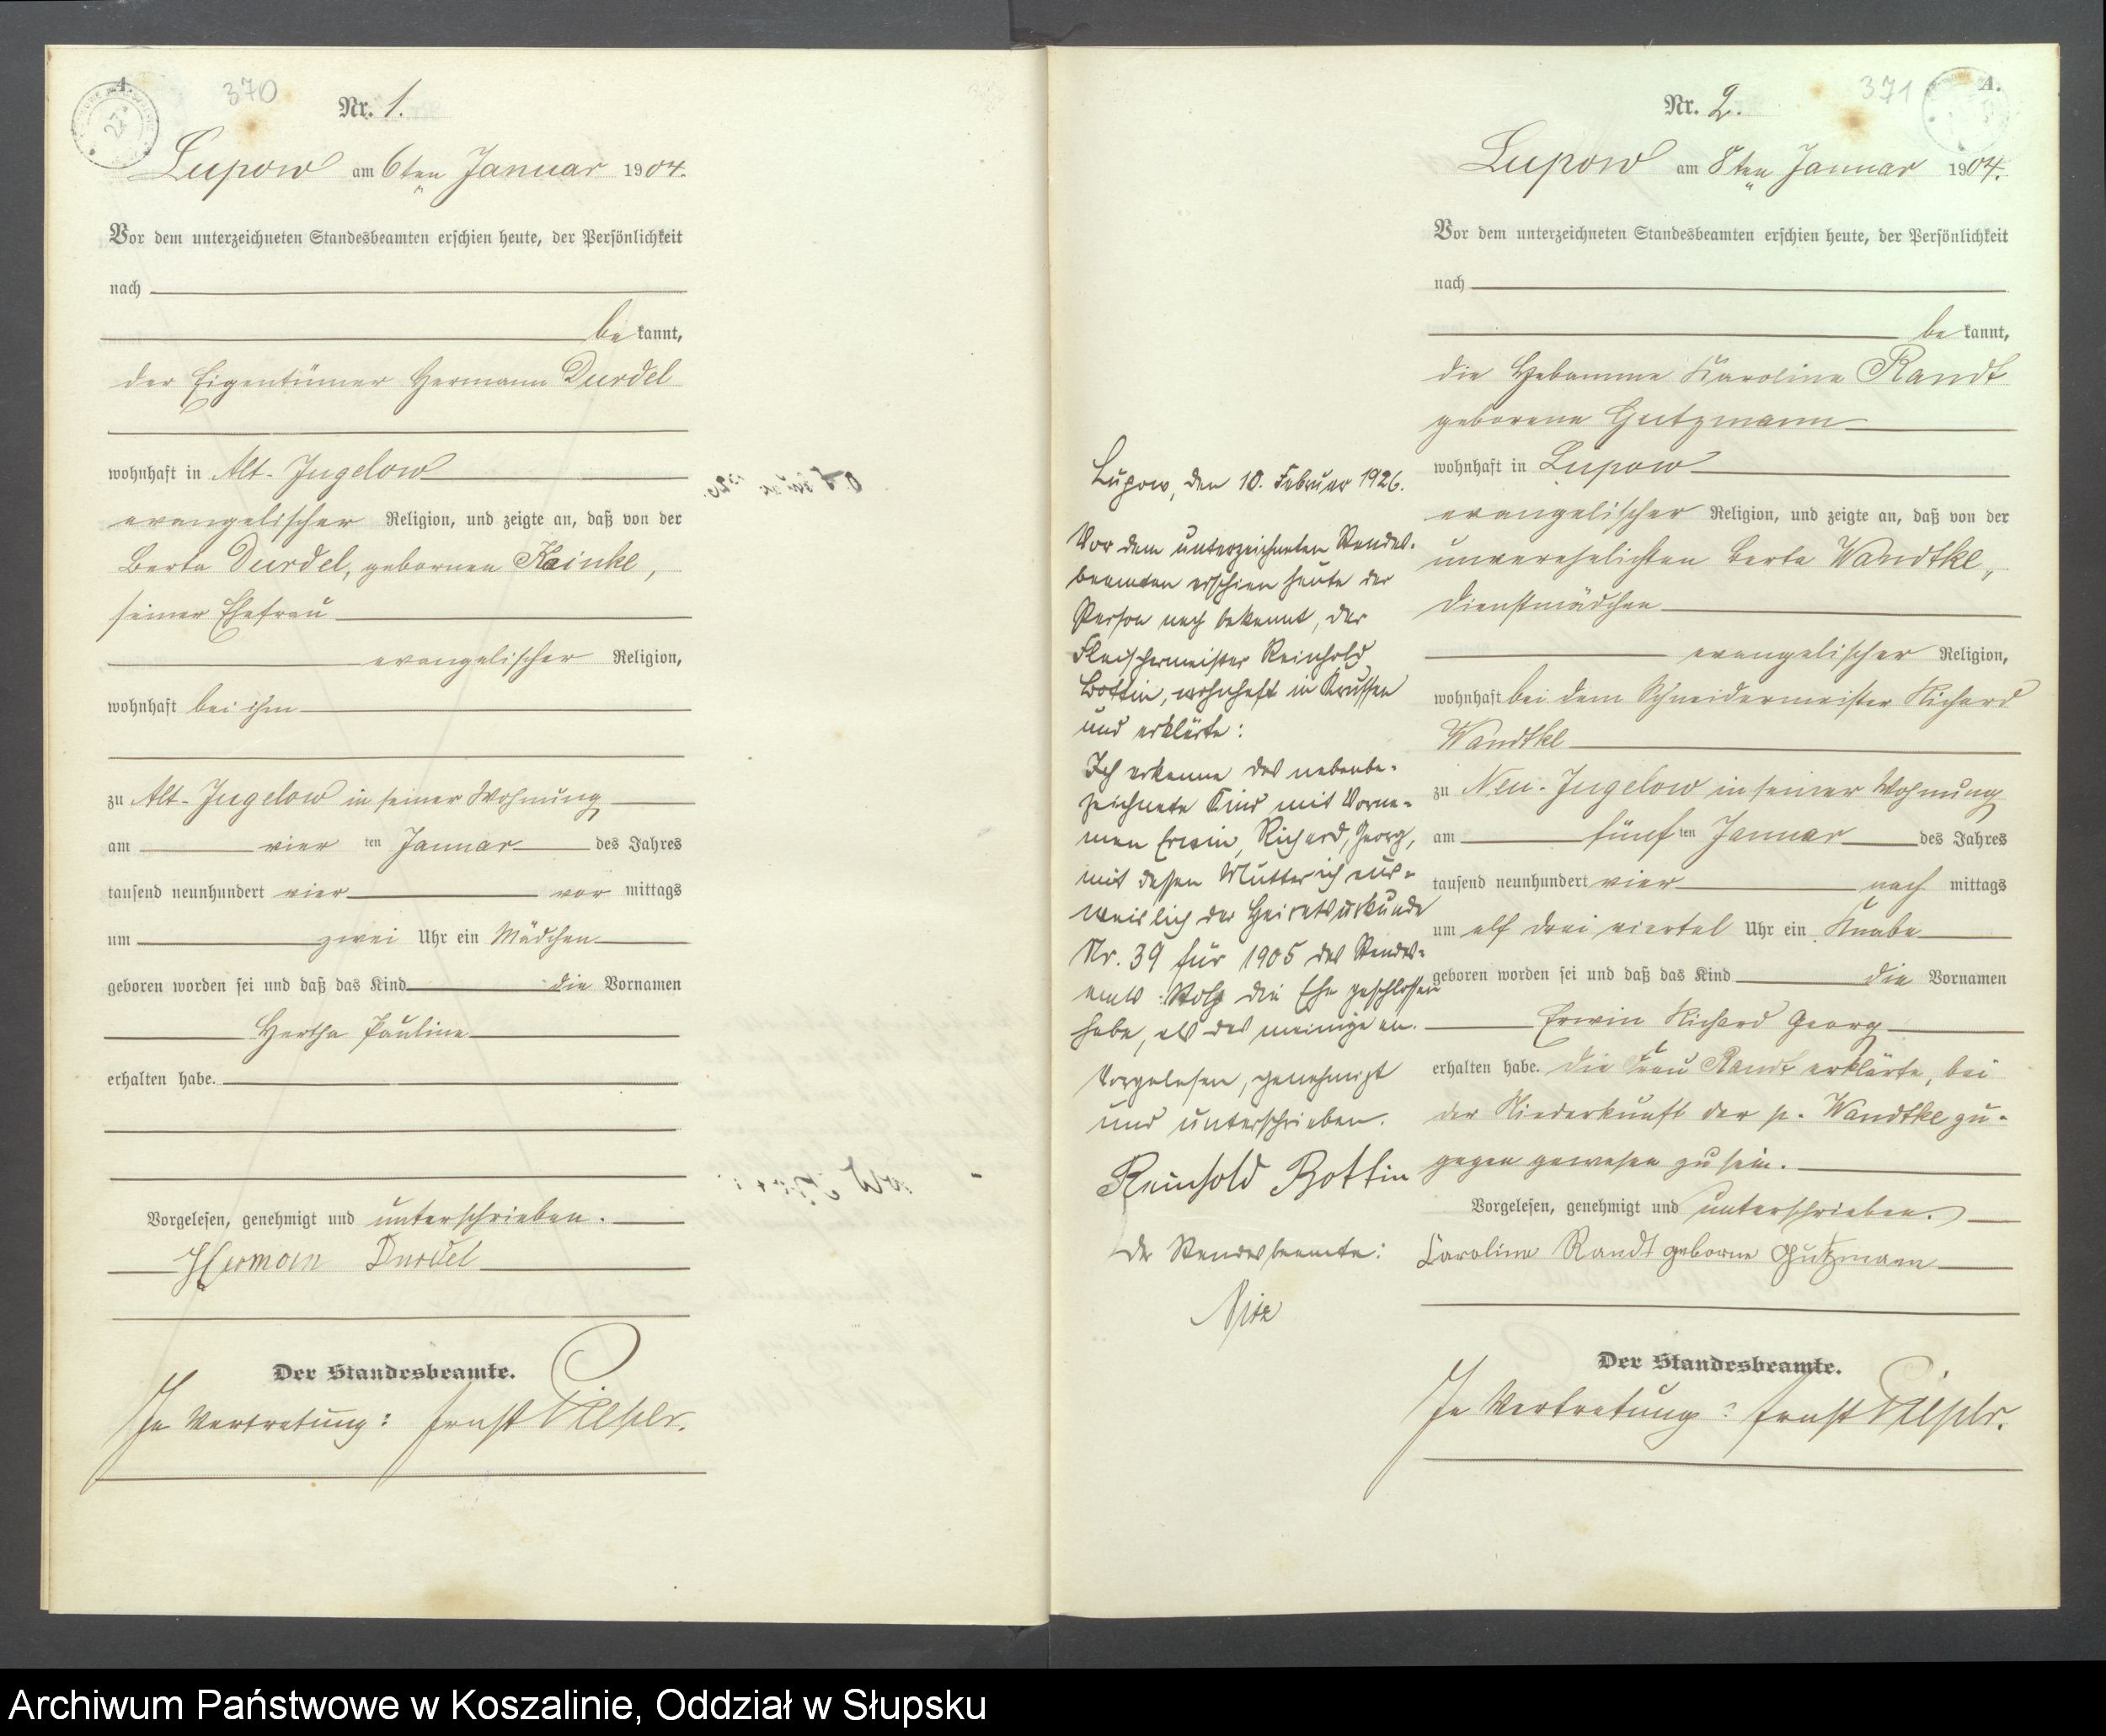 A.
370
Nr. 1.
Lupow am 6ten Januar 1904.
Vor dem unterzeichneten Standesbeamten erschien heute, der Persönlichkeit
nach
be kannt,
der Eigentümer Hermann Durdel
wohnhaft in Alt-Jugelow
evangelischer Religion, und zeigte an, daß von der
Berta Durdel, gebornen Reinke,
seiner Ehefrau
evangelischer Religion,
wohnhaft bei ihm
zu Alt-Jugelow in seiner Wohnung
am vier ten Januar des Jahres
tausend neunhundert vier vor mittags
um zwei Uhr ein Mädchen
geboren worden sei und daß das Kind die Vornamen
Hertha Pauline
erhalten habe.
Vorgelesen, genehmigt und unterschrieben.
Hermann Durdel
Der Standesbeamte.
In Vertretung: Ernst
A.
371
Nr. 2.
Lupow am 8ten Januar 1904.
Vor dem unterzeichneten Standesbeamten erschien heute, der Persönlichkeit
nach
be kannt,
die Hebamme Karoline Randt
geborene Gutzmann
wohnhaft in Lupow
evangelischer Religion, und zeigte an, daß von der
unverehelichten Berta Wandtke,
Dienstmädchen
evangelischer Religion,
wohnhaft bei dem Schneidermeister Richard
Wandtke
zu Neu-Jugelow in seiner Wohnung
am fünf ten Januar des Jahres
tausend neunhundert vier nach mittags
um elf drei viertel Uhr ein Knabe
geboren worden sei und daß das Kind die Vornamen
Erwin Richard Georg
erhalten habe. Die Frau Randt erklärte, bei
der Niederkunft der p. Wandtke zu-
gegen gewesen zu sein.
Vorgelesen, genehmigt und unterschrieben.
Caroline Randt geborne Gutzmann
Der Standesbeamte.
In Vertretung: Ernst
Lupow, den 10. Februar 1926.
Vor dem unterzeichneten Standes-
beamten erschien heute der
Person nach bekannt, der
Fleischermeister Reinhold
Bottin, wohnhaft in Krussen
und erklärte:
Ich erkenne das nebenbe-
zeichnete Kind mit Vorna-
men Erwin, Richard, Georg,
mit dessen Mutter ich aus-
weislich der Heiratsurkunde
Nr. 39 für 1905 des Standes-
amts Stolp die Ehe geschlossen
habe, als das meinige an.
Vorgelesen, genehmigt
und unterschrieben.
Reinhold Bottin
Der Standesbeamte:
Archiwum Państwowe w Koszalinie, Oddział w Słupsku